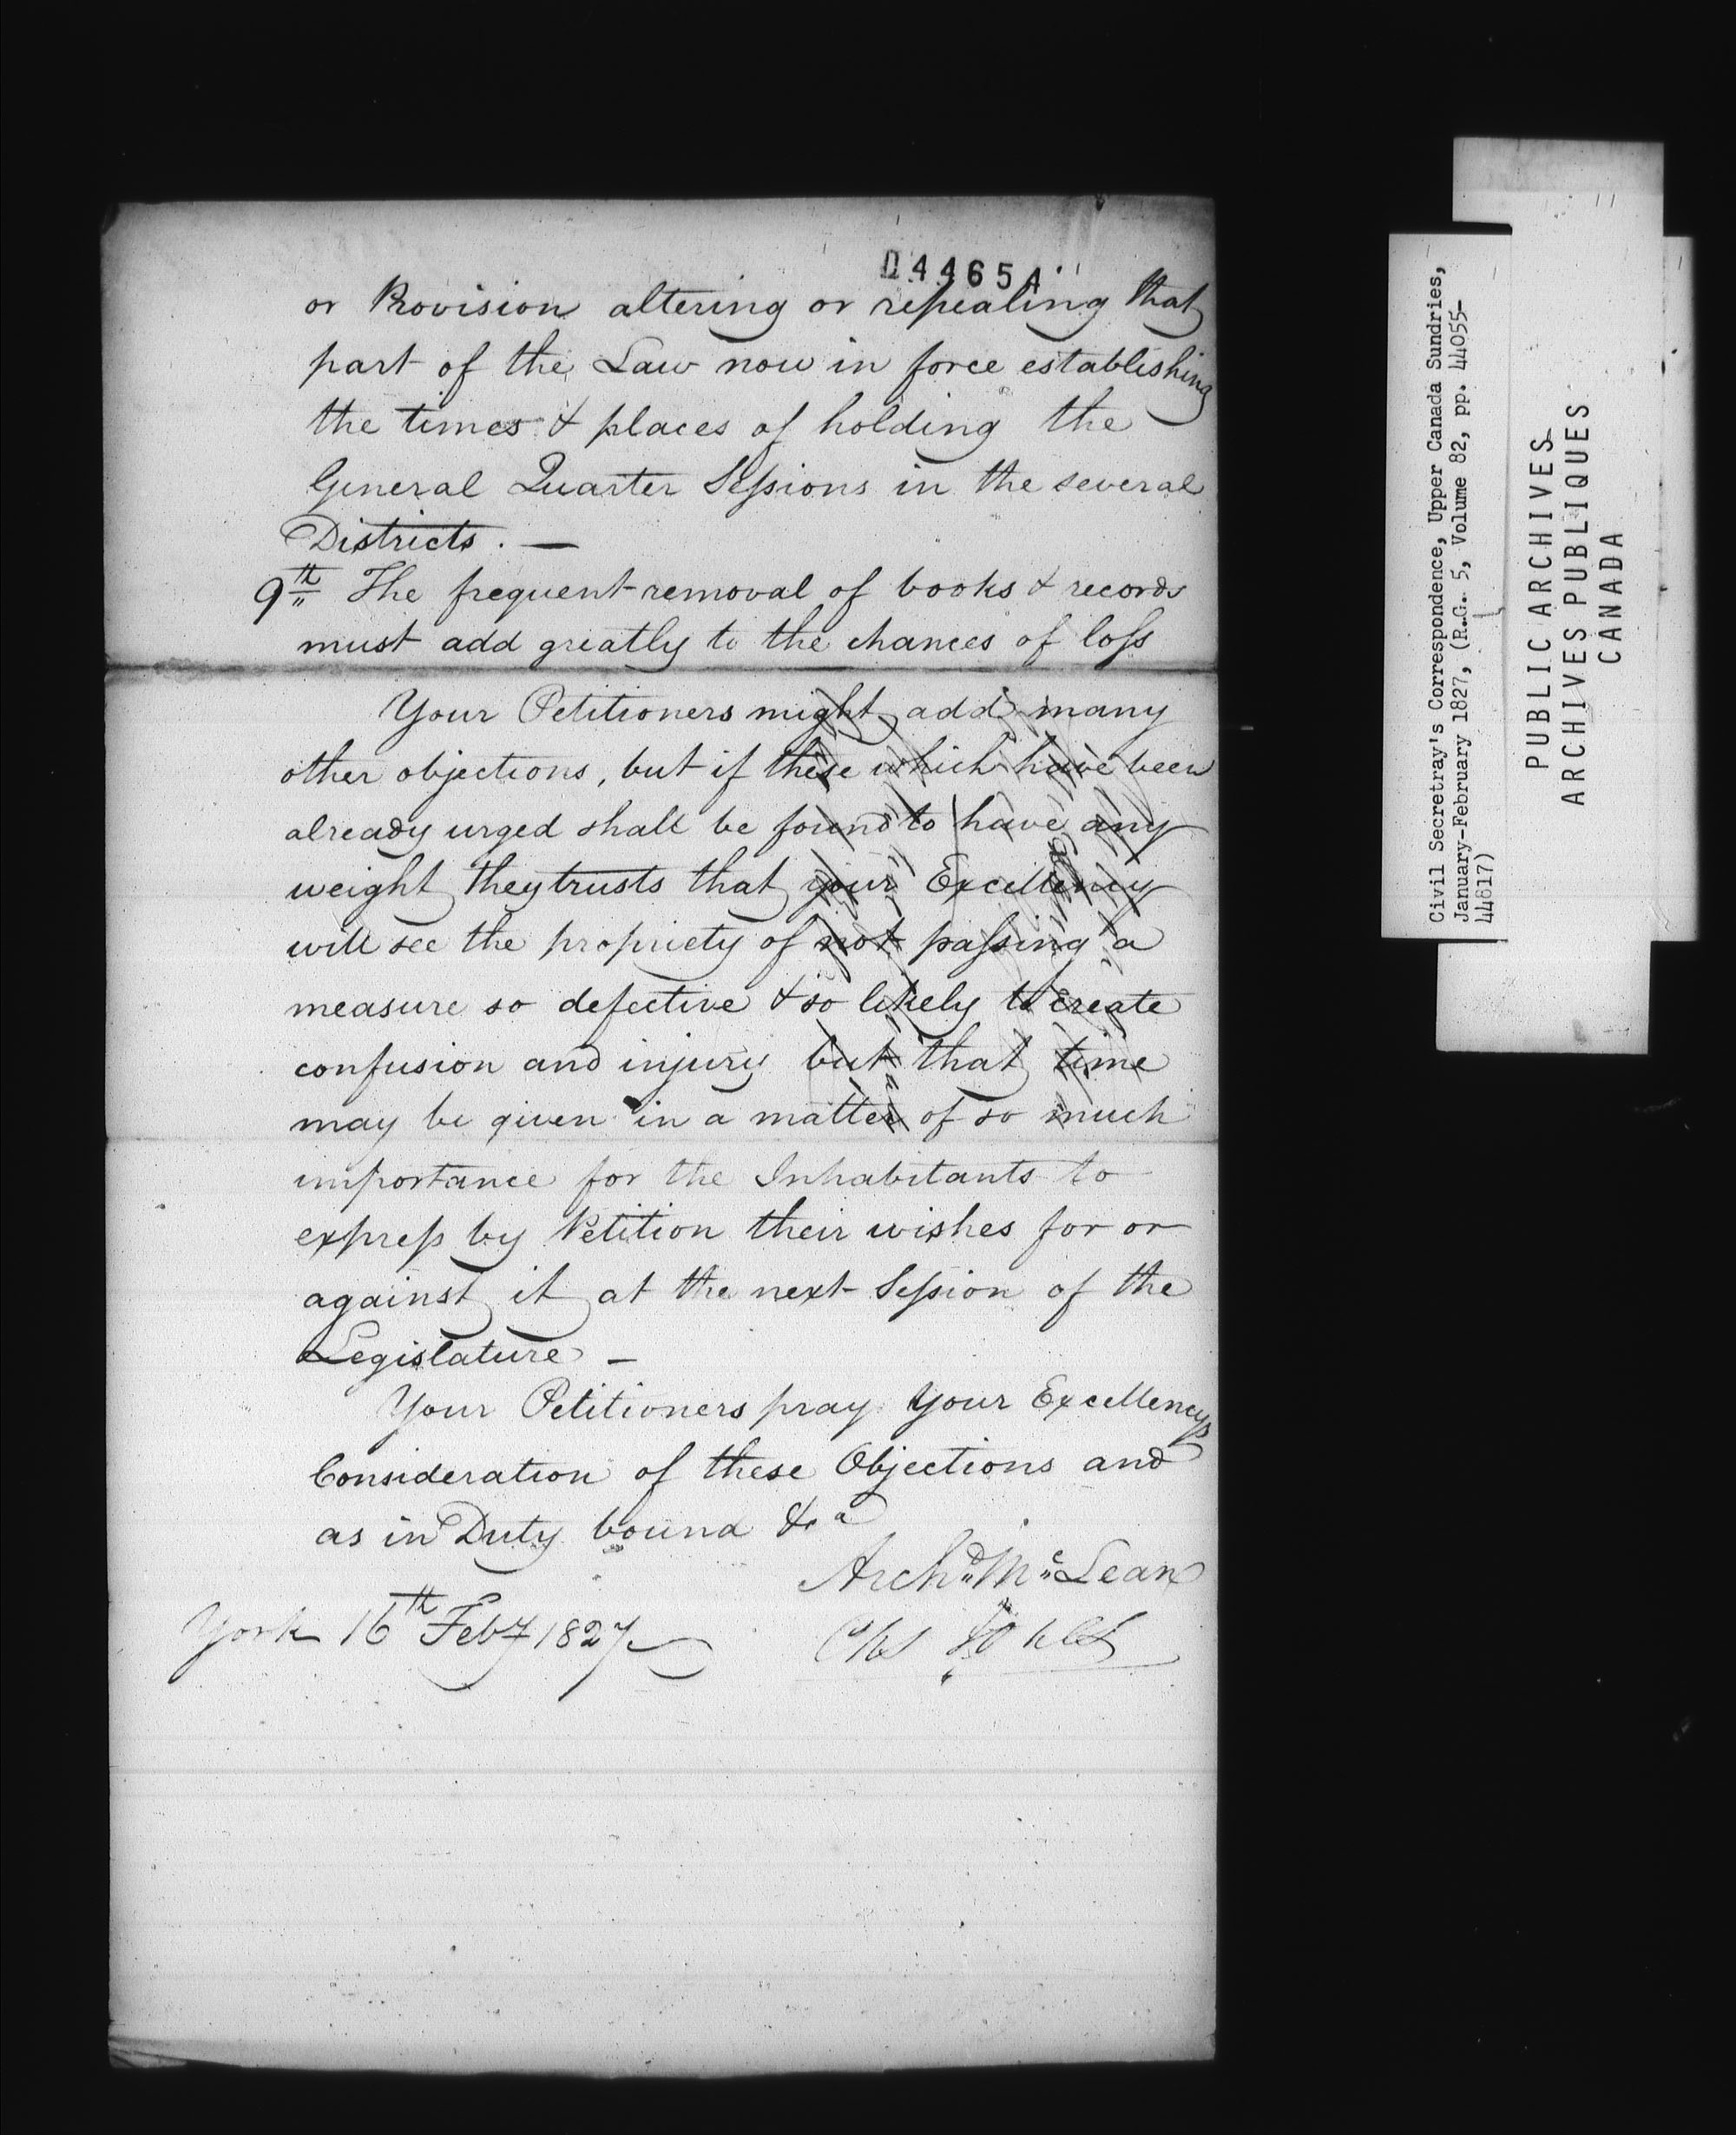 044654
or Provision altering or repealing that
part of the Law now in force establishing
the times & places of holding the
General Quarter Sessions in the several
Districts. —
9th The frequent removal of books & records
must add greatly to the chances of loss
Your Petitioners might add many
other objections, but if these which have been
already urged shall be found to have any
weight they trusts that your Excellency
will see the propriety of not passing a
measure so defective & so likely to create
confusion and injury but that time
may be given in a matter of so much
importance for the Inhabitants to
express by Petition their wishes for or
against it at the next Session of the
Legislature —
Your Petitioners pray Your Excellencys
Consideration of these Objections and
as in Duty bound &ca
Archd McLean
York 16th Feby 1827
Civil Secretray's Correspondence, Upper Canada Sundries,
January-February 1827, (R.G. 5, Volume 82, pp. 44055-
44817)
PUBLIC ARCHIVES
ARCHIVES PUBLIQUES
CANADA